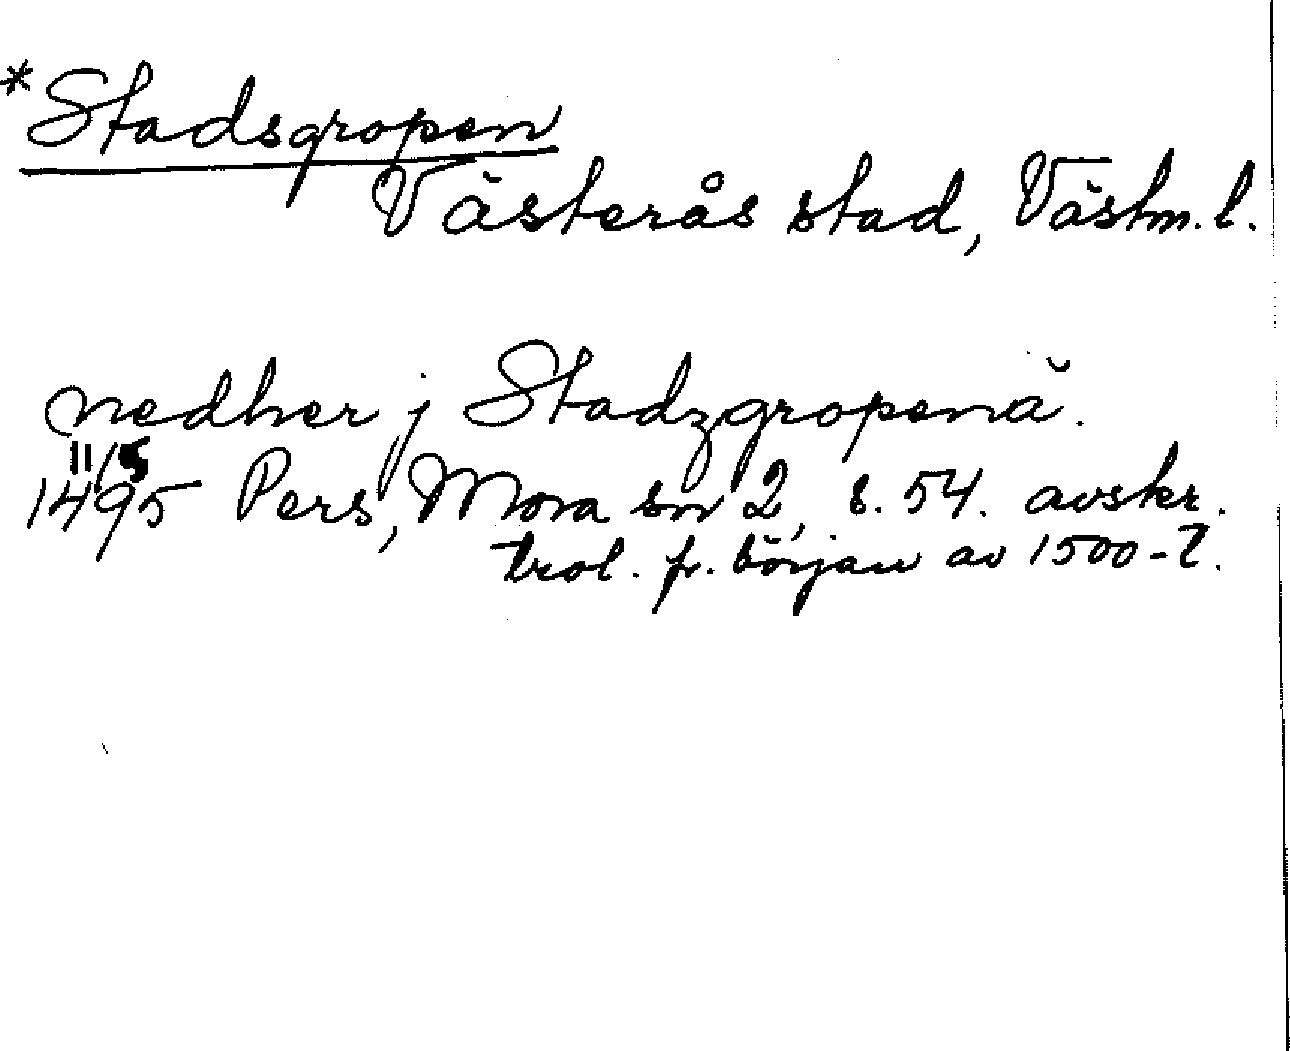 *Stadsgropen
Västerås stad, Västm. l.
nedher j Stadzgropenă.
11/5
1495 Pers, Mora sn 2, s. 54. avskr.
trol. fr. början av 1500-t.